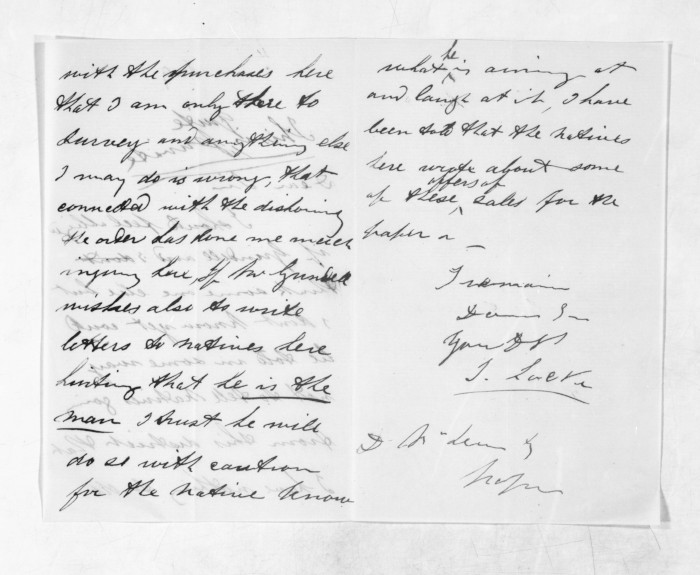 with the purchases here
that I am only there to
survey and anything else
I may do is wrong, that
connected with the dishoning
the order has done me much
injury here, If Mr Grindell
wishes also to write
letters to natives here
hinting that he is the
man I trust he will
do so with caution
for the native know
what he is aiming at
and laugh at it, I have
been told that the natives
here wrote about some
of these offers of sales for the
paper
I remain
Dear Sir
Your
S. Locke
D McLean
Napier